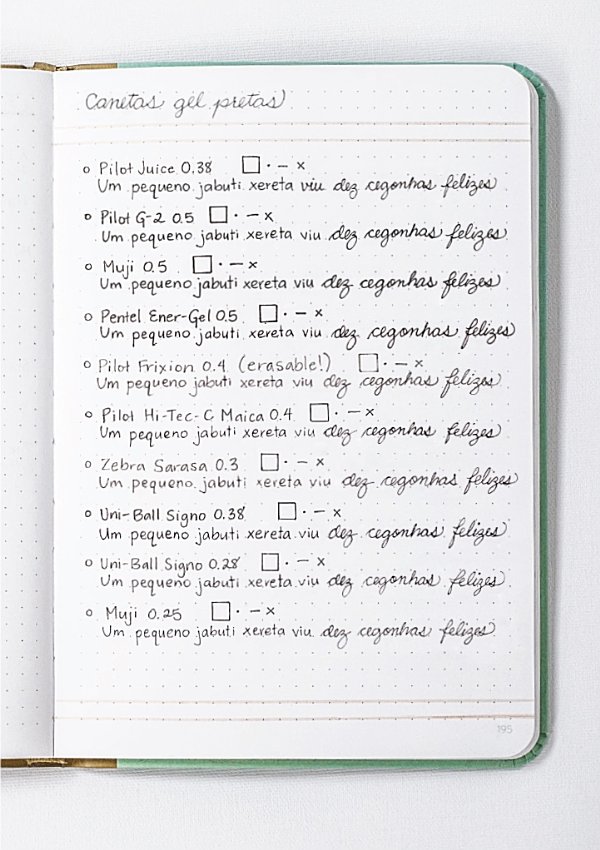 Canetas gel pretas
Pilot Juice 0.38 □ · – x
Um pequeno jabuti xereta viu dez cegonhas felizes
Pilot G-2 0.5 □ · – x
Um pequeno jabuti xereta viu dez cegonhas felizes
Muji 0.5 □ · – x
Um pequeno jabuti xereta viu dez cegonhas felizes
Pentel Ener-Gel 0.5 □ · – x
Um pequeno jabuti xereta viu dez cegonhas felizes
Pilot Frixion 0.4 (erasable!) □ · – x
Um pequeno jabuti xereta viu dez cegonhas felizes
Pilot Hi-Tec-C Maica 0.4 □ · – x
Um pequeno jabuti xereta viu dez cegonhas felizes
Zebra Sarasa 0.3 □ · – x
Um pequeno jabuti xereta viu dez cegonhas felizes
Uni-Ball Signo 0.38 □ · – x
Um pequeno jabuti xereta viu dez cegonhas felizes
Uni-Ball Signo 0.28 □ · – x
Um pequeno jabuti xereta viu dez cegonhas felizes
Muji 0.25 □ · – x
Um pequeno jabuti xereta viu dez cegonhas felizes
195